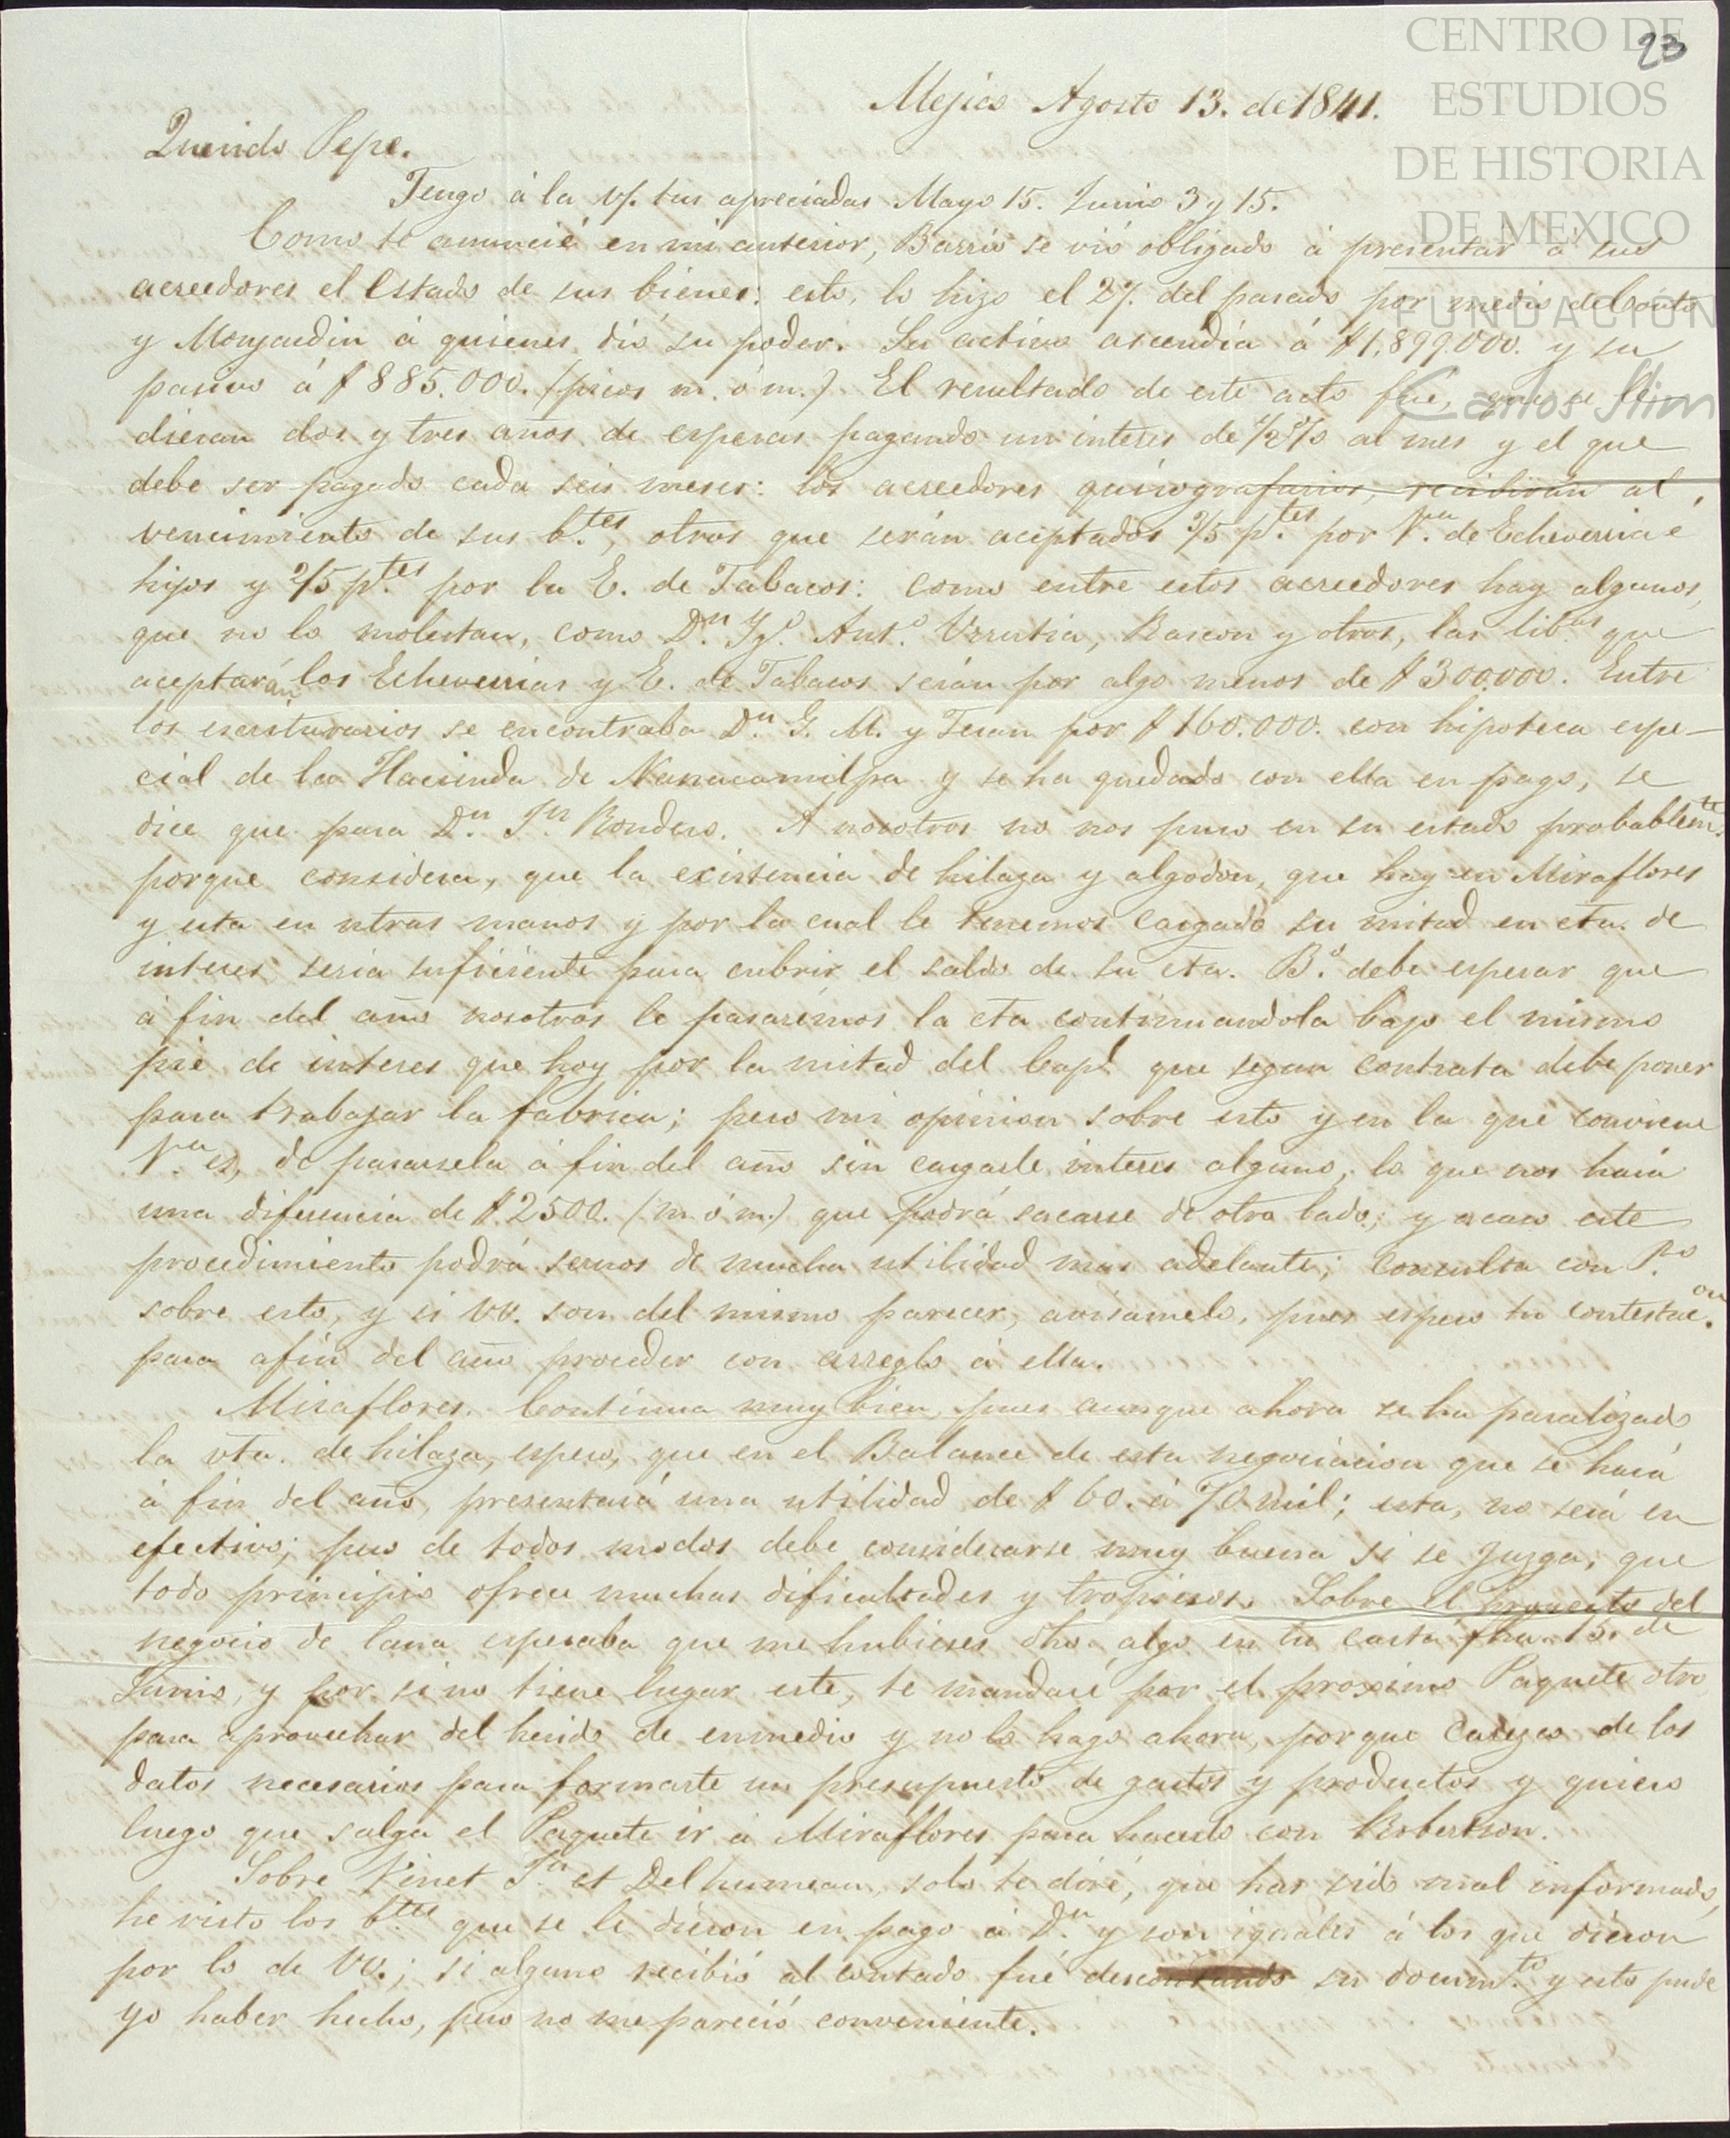 CENTRO DE
ESTUDIOS
DE HISTORIA
DE MEXICO
FUNDACIÓN
Carlos Slim
23
Mejico Agosto 13. de 1841.
Querido Pepe.
Tengo á la v/. tus apreciadas Mayo 15. Junio 3 y 15.
Como te anuncié en mi anterior, Barrio se vió obligado á presentar á sus
acreedores el Estado de sus bienes: esto, lo hizo el 27. del pasado por medio de Couto
y Monjardin á quienes dió su poder. Su activo ascendia á $1,899.000. y su
pasivo á $885.000. (picos m. ó m.) El resultado de este acto fue, que se le
dieran dos y tres años de esperas pagando un interes de 1/2 % al mes y el que
debe ser pagado cada seis meses: los acreedores quirografarios, recibirán al
vencimiento de sus b.tes, otros que serán aceptados 3/5 p.tes por V.ta de Echeverria é
hijos y 2/5 p.tes por la E. de Tabacos: como entre estos acreedores hay algunos,
que no lo molestan, como D.n Yg.o Ant.o Urrutia, Rascon y otros, las lib.as que
aceptarán los Echeverrias y E. de Tabacos serán por algo menos de $300.000. Entre
los escriturarios se encontraba D.n G. M. y Teran por $160.000. con hipoteca espe-
cial de la Hacienda de Nanacamilpa y se ha quedado con ella en pago, se
dice que para D.n J.n Rondero. A nosotros no nos puso en su estado probablem.te
porque considera, que la existencia de hilaza y algodon, que hay en Miraflores
y esta en ntras manos y por la cual le tenemos cargado su mitad en cta. de
interes seria suficiente para cubrir el saldo de su cta. B.o debe esperar que
á fin del año nosotros le pasarémos la cta continuandola bajo el mismo
pie de interes que hoy por la mitad del Capl. que segun contrata debe poner
para trabajar la fabrica; pero mi opinion sobre esto y en la que conviene
es, de pasarsela á fin del año sin cargarle interes alguno, lo que nos haria
una diferencia de $2500. (m. ó m.) que podrá sacarse de otro lado; y acaso este
procedimiento podrá sernos de mucha utilidad mas adelante; consulta con P.o
sobre esto, y si VV. son del mismo parecer, avisamelo, pues espero tu contestac.on
para afin del año proceder con arreglo á ella.
Miraflores. Continua muy bien, pues aunque ahora se ha paralizado
la vta. de hilaza, espero, que en el Balance de esta negociacion que se hará
á fin del año, presentará una utilidad de $60. á 70 mil; esta, no será en
efectivo; pero de todos modos debe considerarse muy buena si se juzga, que
todo principio ofrece muchas dificultades y tropiesos. Sobre el proyecto del
negocio de lana esperaba que me hubieses dho. algo en tu carta fha. 15. de
Junio, y por si no tiene lugar este, te mandaré por el proximo Paquete otro
para aprovechar del herido de enmedio y no lo hago ahora, porque carezco de los
datos necesarios para formarte un presupuesto de gastos y productos y quiero
luego que salga el Paquete ir á Miraflores para hacerlo con Robertson.
Sobre Vinet J.n et Delhumeau, solo te diré, que has sido mal informado,
he visto los b.tes que se le dieron en pago á D.n y son iguales á los que dieron
por lo de VV.; si alguno recibió al contado fué descontando su docum.to y esto pude
yo haber hecho, pero no me pareció conveniente.